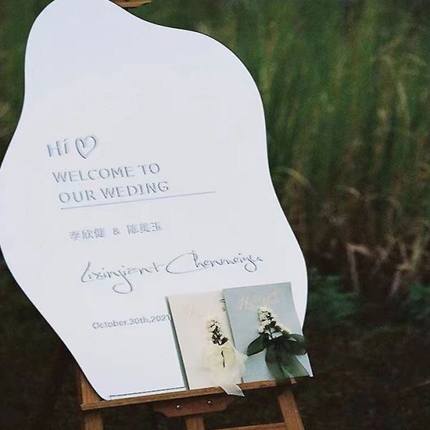 Hi ♡
WELCOME TO
OUR WEDING
李欣健 & 陈美玉
Lixinjian & Chenmeiyu
October.30th,2021